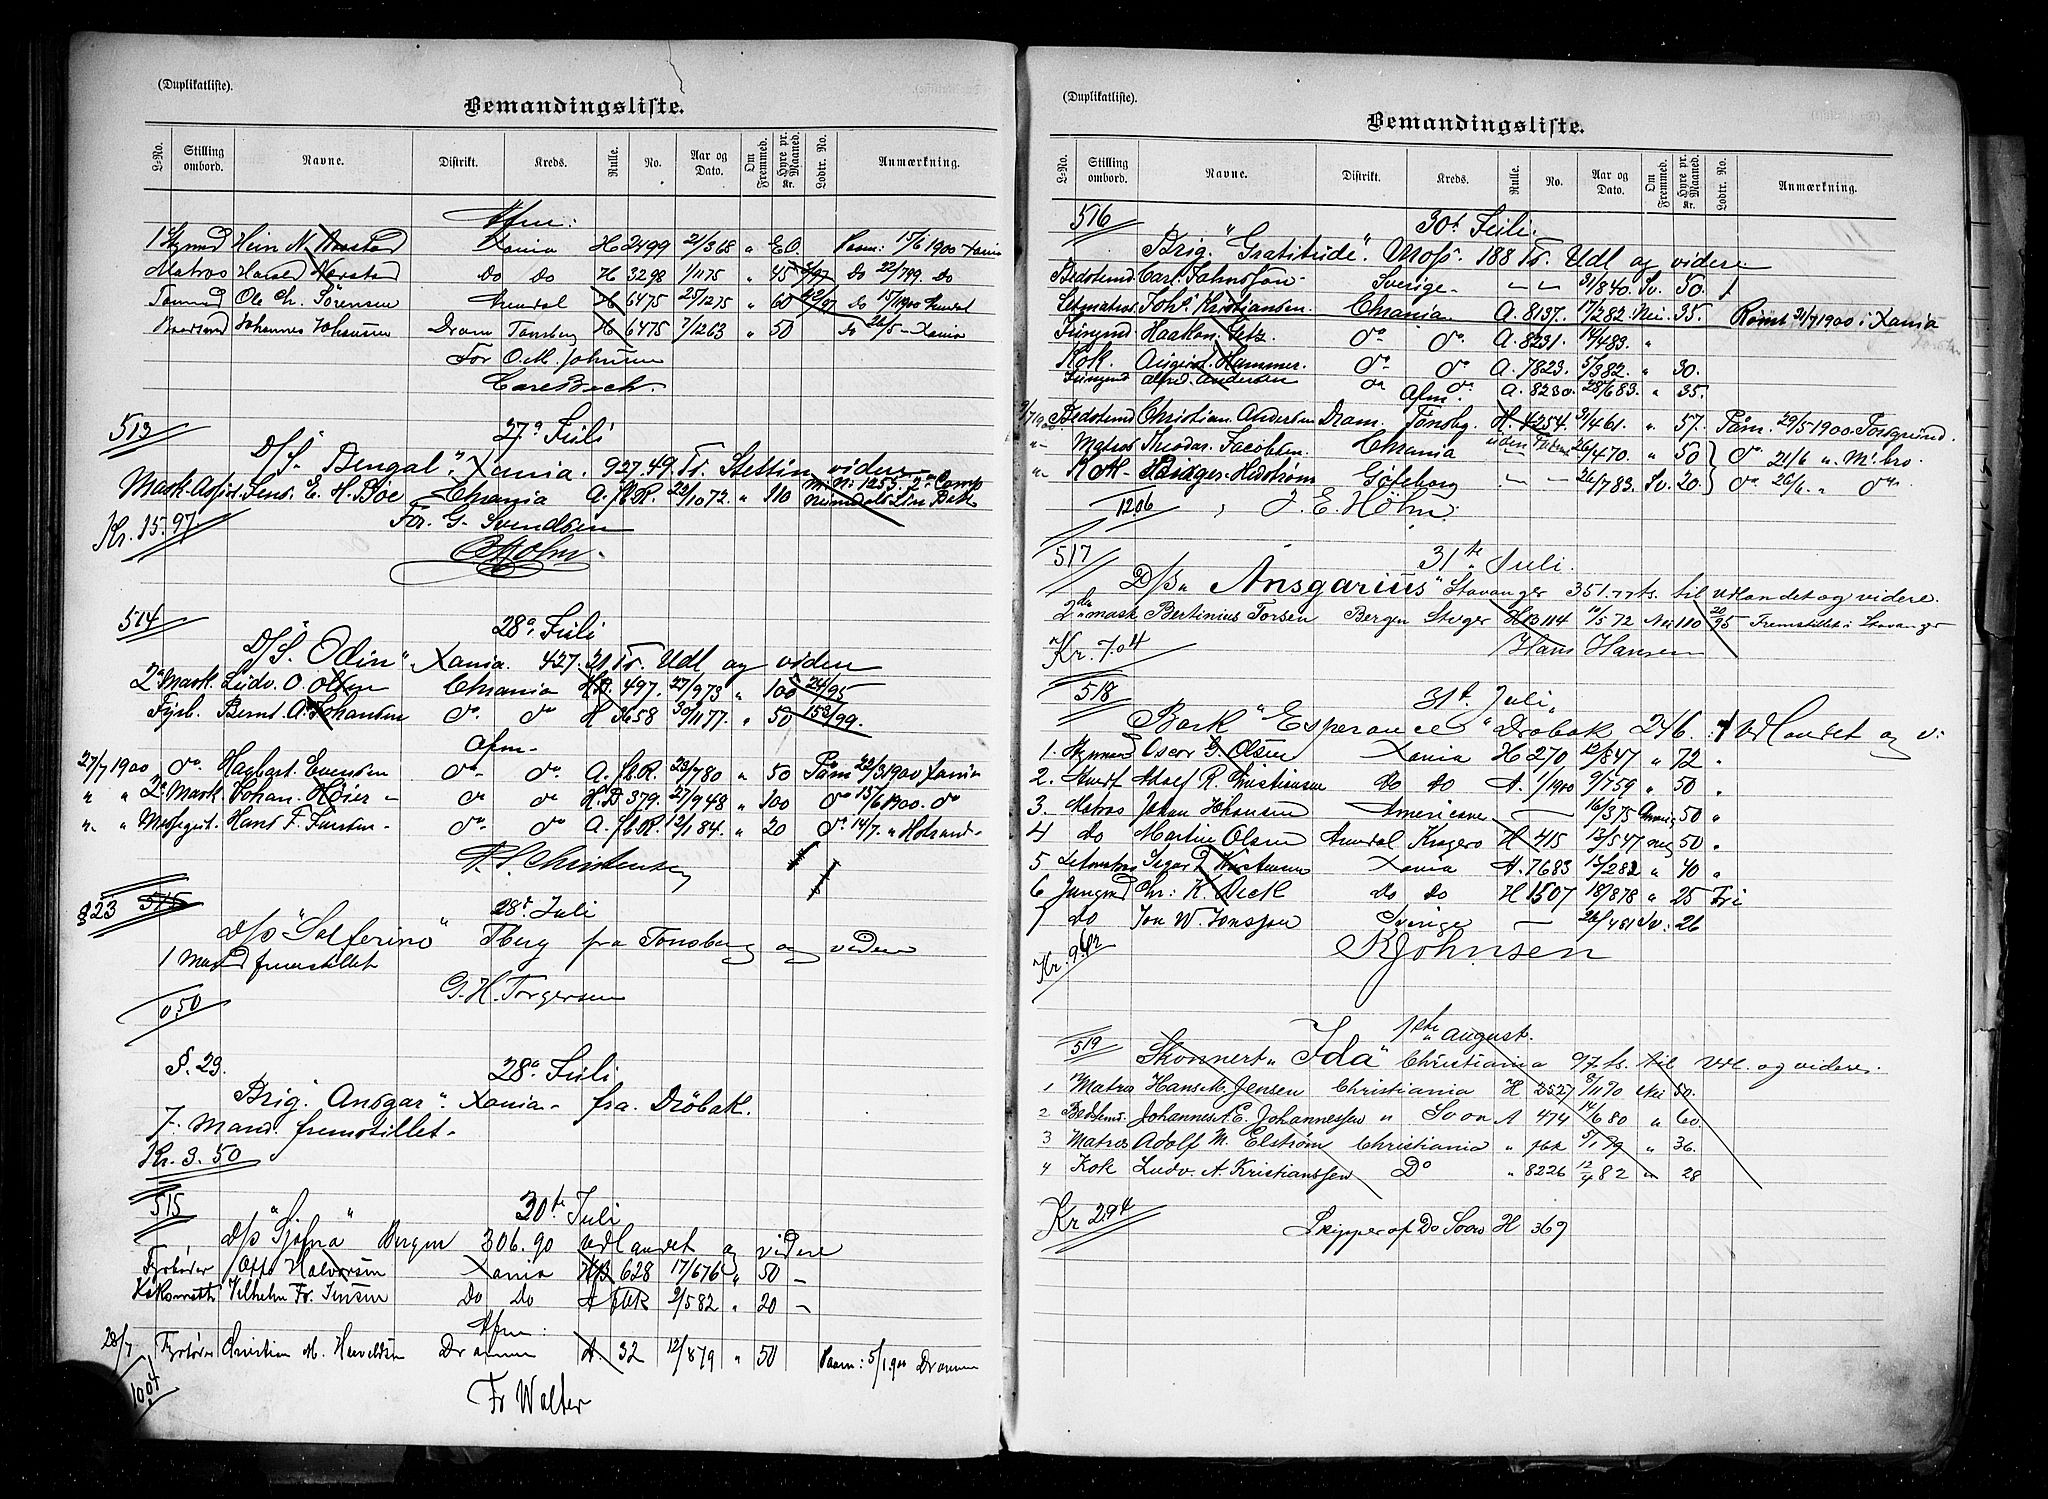 (Duplikatliste).
Bemandingsliste.
L-No. Stilling ombord. Navne. Distrikt. Kreds. Rulle. No. Aar og Dato. Om Fremmed. Hyre pr. Maaned. Kr. Lodtr. No. Anmærkning.
Afm:
1 Styrmd Hein N. Xania H 2499 21/3 68 " 80 Paam: 15/6 1900 Xania
Matros Harald Do Do H 3298 1/11 75 " 45 Do 22/7 99. Do
Tømmd Ole Chr. Sörensen Arendal H 6475 25/12 75 " 60 do 15/1 1900
Baadsmd Johannes Johansen Dram Tønsberg H 6475 7/12 63 " 50 Do 26/5 - Xania
For O. M. Johnsen
Carl Bech
513 27de Juli
D/S. "Bengal". Xania. 927.49. Tr. Stettin videre
Mask. Assist. Jens. E. H. Böe Chrania A. fl.R. 22/10 72. " 110 M. No: 1255. 2den Comp
Kr. 15.97. For. G. Svendsen
Holm
514 28de Juli
D/S. "Odin" Xania. 427.21 Tr. Udl og videre
2den Mask. Ludv. O. Olsen Chrania H.B. 497. 27/9 73 " 100 24/95
Fyrb. Bernt. A. Johansen do. do H 3658 30/11 77. " 50 153/99.
Afm-
27/7 1900 do. Hagbart Evensen do. do. A. fl.R. 23/7 80 " 50 Paam 22/3 1900 Xania
" " 2den Mask Johan. Höier - do do H.B 379. 27/9 48 " 100 do 15/6 1900. do
" " Messegut. Hans F. Larsen - do. do A. fl.R. 12/1 84. " 20 do 14/7. "
Christensen
§23 515 28de Juli
d/s "Solferino" Tberg fra Tønsberg og videre
1 Mand fremstillet
0,50 G. H. Torgersen
§. 23. 28de Juli
Brig. "Ansgar". Xania - fra Dröbak.
7. Mand. fremstillet -
Kr. 3. 50
515 30te Juli
d/s "Sjofna" Bergen 306.90 udlandet og videre
Fyrbøder Otto Halvorsen Xania HB 628 17/6 76 " 50 -
Koksmath Vilhelm Fr. Jensen Do Do A flR 2/5 82 " 20 -
Afm:
28/7 Fyrbøder Christian M. Drammen A. 32 12/8 79 " 50 Paam: 5/1 900 Drammen
10.04 Fr Walter
(Duplikatliste).
Bemandingsliste.
L-No. Stilling ombord. Navne. Distrikt. Kreds. Rulle. No. Aar og Dato. Om Fremmed. Hyre pr. Maaned. Kr. Lodtr. No. Anmærkning.
516 30te Juli.
Brig. "Gratitude". Moss. 188 Tr. Udl og videre
Bedstmd Carl. Johnsson - Sverige - 31/8 40. Sv. 50.
Letmatros Johs. Kristiansen. Chrania A. 8137. 17/2 82. Nei. 35. Rømt 31/7 1900 i Xania
Jungmd Haakon. Getz. do do A. 8231. 14/4 83. "
Kok. August. Hammer. do do A. 7823. 5/3 82. " 30.
Jungmd Alfred. Andersen do do A. 8230. 28/6 83. " 35.
Afm.
Bedstmd Christian Andersen Dram. Tönsbg. H. 4254. 2/4 61. " 57. Paam. 29/5 1900. Porsgrund.
" Matros Theodor. Jacobsen. Chrania uden 26/4 70. " 50 do. 21/6 "
" K M - Hidström Göteborg - 26/7 83. Sv. 20. do. 26/6. " do.
12.06 J. E. Höhn.
517 31te Juli.
D/s "Ansgarius" Stavanger 351 rts. til udlandet og videre.
2den mask Bertinius Torsen Bergen Stvger HB 114 11/5 72 Nei 110 20/95 Fremstillet i Stavanger
Kr. 7.04 Hans Hansen
518 31te Juli
Bark "Esperance" Drøbak 246. Udlandet og v.
1. Styrmand Oscar G. Olsen Xania H 270 12/8 47 " 72 "
2. Stuert Adolf R. Kristiansen do do A. 1/1900 9/7 59 " 50 "
3. Matros Johan Johansen Amerikane - 16/3 75 50 "
4 do Martin Olsen Arendal Kragerø H 415 13/5 47 nei 50 "
5 Letmatros Xania A. 7683 15/2 82 " 40 "
6 Jungmd Chr: K. Beck Do Do H 1507 18/8 78 " 25 Fri
7 do Jon W. Jonsson Sverige - 26/4 81 Sv. 26
Kr. 9.42 K Johnsen
519 1ste August.
Skonnert "Ida" Christiania 97 ts. til Udl. og videre.
1 Matros Hans M. Jensen Christiania H 2527 8/11 70 Nei 50.
2 Bedstmd. Johannes A. E. Johannessen " Svon A 474 14/6 80 " 60
3 Matros Adolf M. Elstrøm Christiania " 5/1 79 " 36.
4 Kok Ludv. A. Kristianssen Do " 8226 12/4 82 " 28
Kr 2.94 Skipper af Do Soon H 369